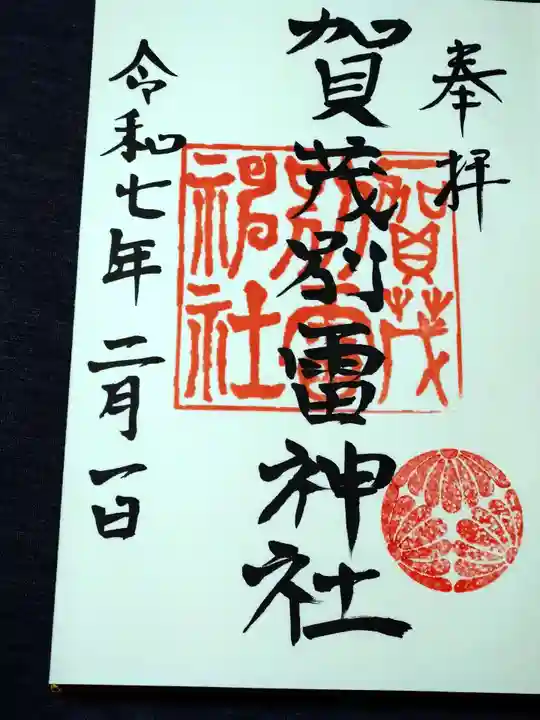 奉拝
賀茂別雷神社
賀茂
別雷
神社
令和七年二月一日